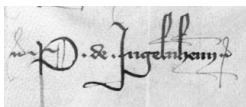 P. de Ingelnheim